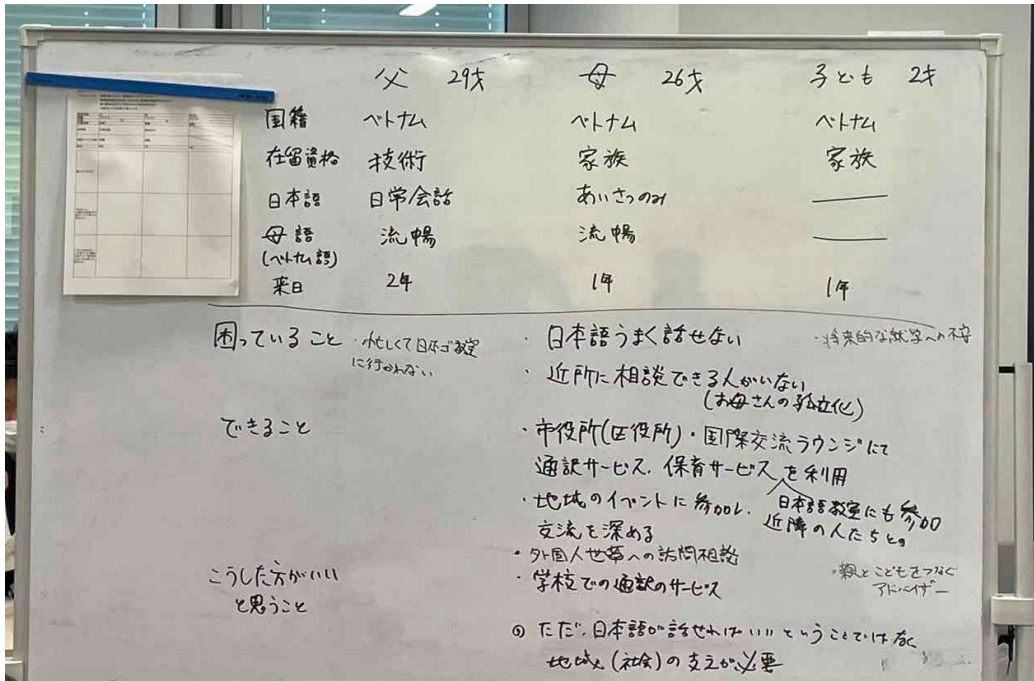 父 29才 母 26才 子ども 2才
国籍 ベトナム ベトナム ベトナム
在留資格 技術 家族 家族
日本語 日常会話 あいさつのみ
母語 流暢 流暢
(ベトナム語)
来日 2年 1年 1年
困っていること ・忙しくて日本ゴ教室
に行かれない
・日本語うまく話せない
・近所に相談できる人がいない
(お母さんの孤立化)
・将来的な就学への不安
できること
・市役所(区役所)・国際交流ラウンジにて
通訳サービス、保育サービスを利用
日本語教室にも参加
・地域のイベントに参加し、近隣の人たちと。
交流を深める
・外国人世帯への訪問相談
こうした方がいい
と思うこと
・学校での通訳のサービス
・親とこどもをつなぐ
アドバイザー
◎ ただ、日本語が話せればいいということではなく
地域(社会)の支えが必要